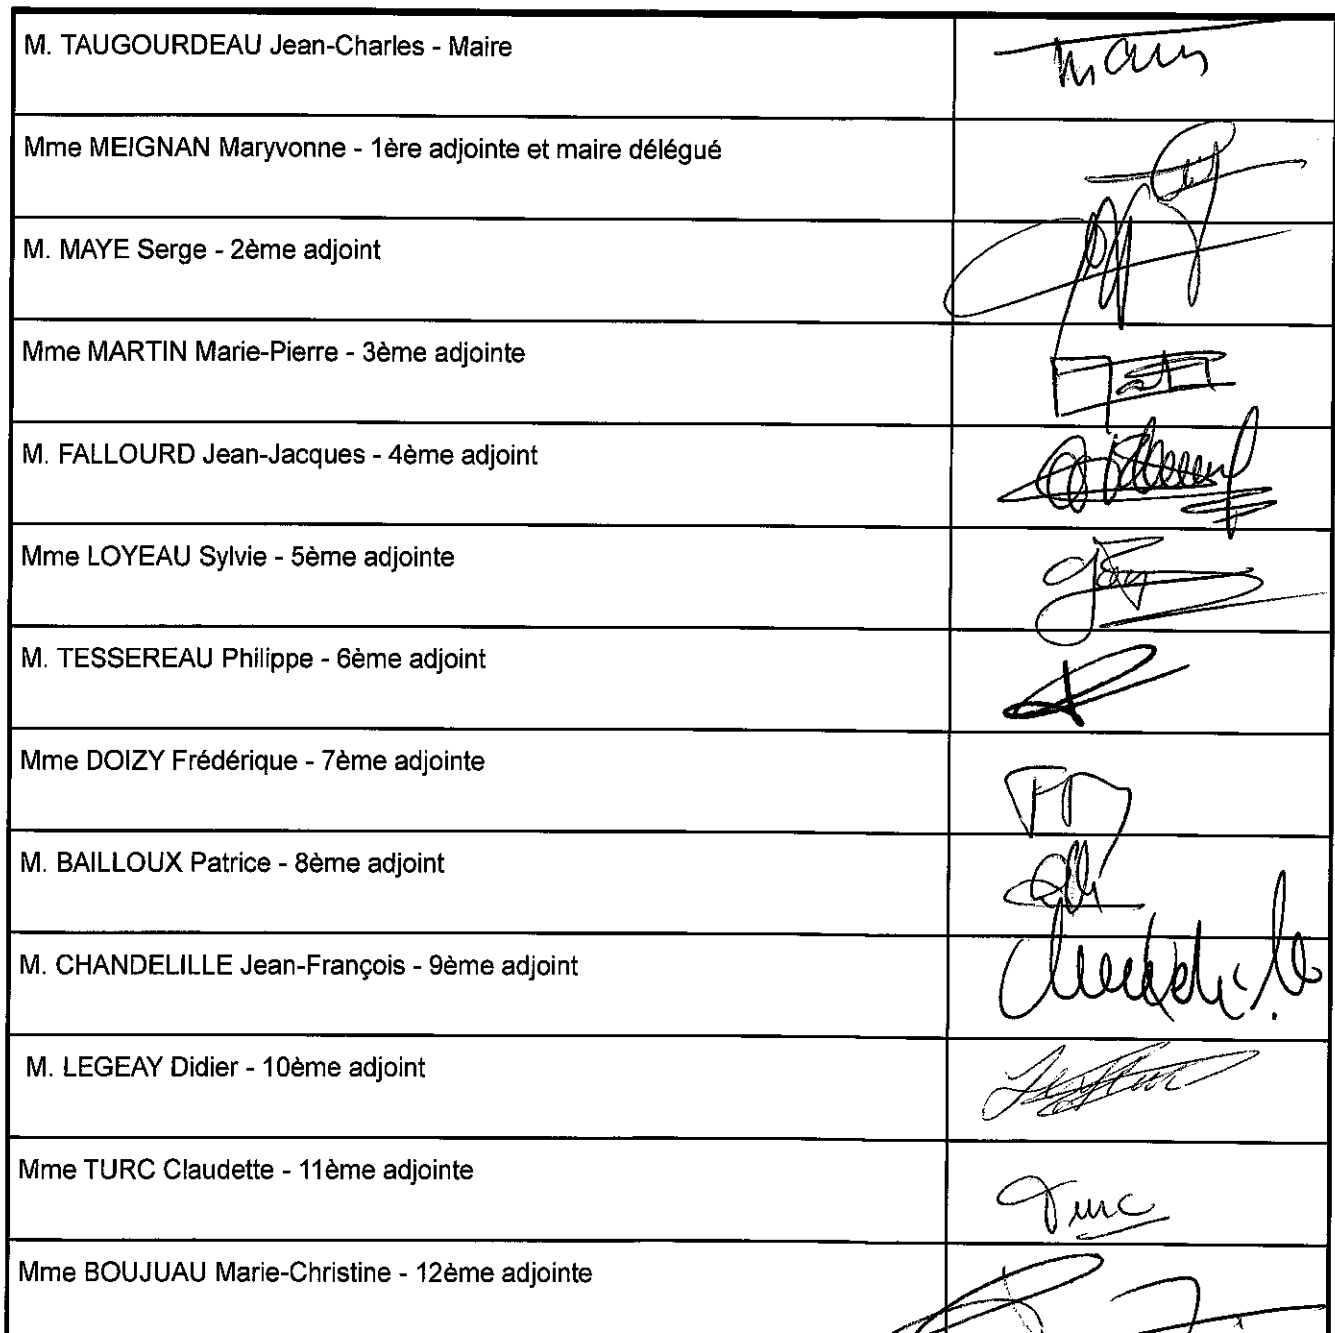 M. TAUGOURDEAU Jean-Charles - Maire
Mme MEIGNAN Maryvonne - 1ère adjointe et maire délégué
M. MAYE Serge - 2ème adjoint
Mme MARTIN Marie-Pierre - 3ème adjointe
M. FALLOURD Jean-Jacques - 4ème adjoint
Mme LOYEAU Sylvie - 5ème adjointe
M. TESSEREAU Philippe - 6ème adjoint
Mme DOIZY Frédérique - 7ème adjointe
M. BAILLOUX Patrice - 8ème adjoint
M. CHANDELILLE Jean-François - 9ème adjoint
M. LEGEAY Didier - 10ème adjoint
Mme TURC Claudette - 11ème adjointe
Turc
Mme BOUJUAU Marie-Christine - 12ème adjointe